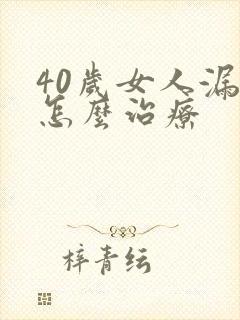 40歲女人漏
怎麼治療
梓青纭